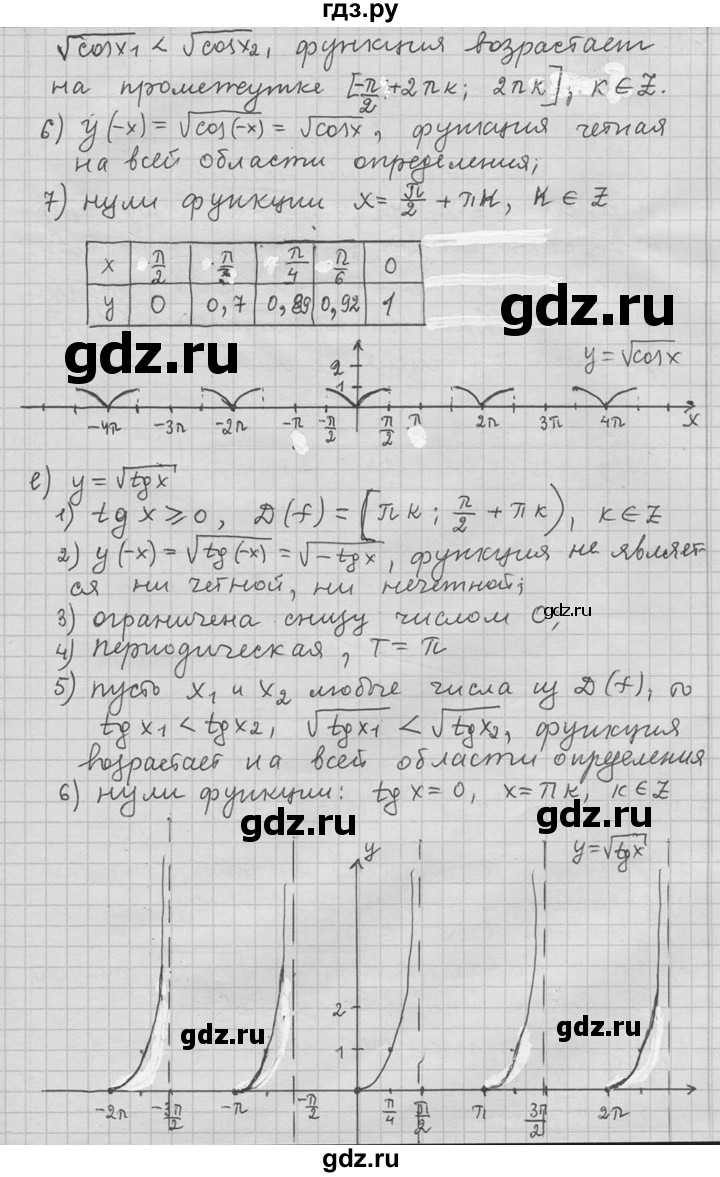 гдз.ру
√cosx₁ < √cosx₂, функция возрастает
на промежутке [-π/2 + 2πк; 2πк], к ∈ Z.
6) y(-x) = √cos(-x) = √cosx, функция четная
на всей области определения;
7) нули функции x = π/2 + πк, к ∈ Z
x -π/2 -π/3 -π/4 -π/6 0
y 0 0,7 0,89 0,92 1
gdz.ru gdz.ru
y = √cosx
2
1
-4π -3π -2π -π -π/2 π/2 π 2π 3π 4π x
е) y = √tgx
1) tg x ⩾ 0, D(f) = [πк; π/2 + πк), к ∈ Z
2) y(-x) = √tg(-x) = √-tgx, функция не являет-
ся ни четной, ни нечетной;
3) ограничена снизу числом 0,
gdz.ru
4) периодическая, T = π
5) пусть x₁ и x₂ любые числа из D(f), то
tgx₁ < tgx₂, √tgx₁ < √tgx₂, функция
возрастает на всей области определения
6) нули функции: tg x = 0, x = πк, к ∈ Z
gdz.ru gdz.ru
y y = √tgx
2
gdz.ru gdz.ru
1
-2π -3π/2 -π -π/2 π/4 π/2 π 3π/2 2π
gdz.ru